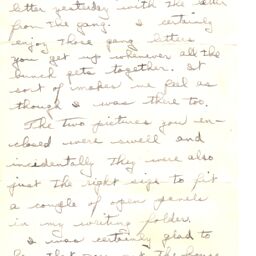 letter yesterday with the letter
from the gang. I certainly
enjoy those gang letters
you get up whenever all the
bunch gets together. It
sort of makes me feel as
though I was there too.
The two pictures you en-
closed were swell and
incidentally they were also
just the right size to fit
a couple of open panels
in my writing folder.
I was certainly glad to
that you got the house